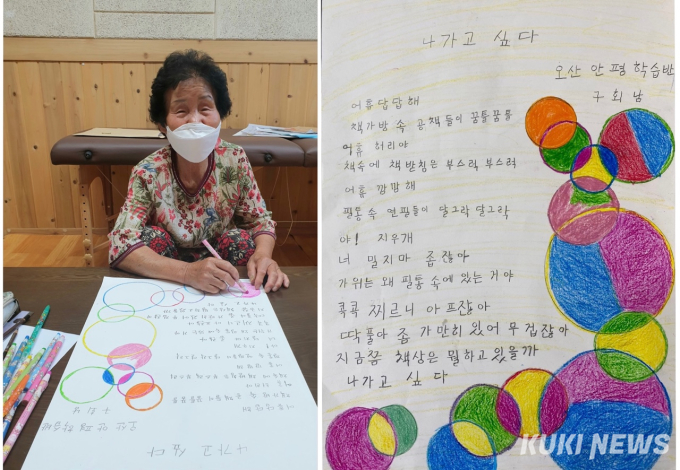 나가고 싶다
오산 안평 학습반
구희남
어휴 답답해
책가방 속 공책들이 꿈틀꿈틀
어휴 허리야
책속에 책받침은 부스럭 부스럭
어휴 깜깜해
필통 속 연필들이 달그락 달그락
야! 지우개
너 밀지마 좁잖아
가위는 왜 필통 속에 있는 거야
콕콕 찌르니 아프잖아
딱풀아 좀 가만히 있어 무겁잖아
지금쯤 책상은 뭘하고 있을까
나가고 싶다
KUKI NEWS
나가고 싶다